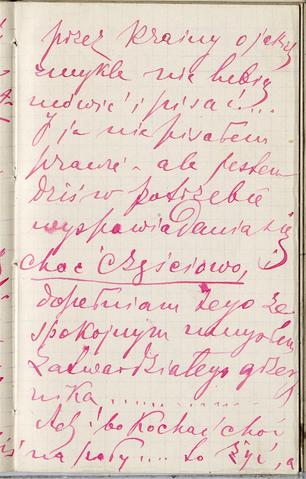 przez Krainy o jakiej
zwykle nie lubię
mówić i pisać!...
I ja nie pisałem
prawie – ale jestem
dziś w potrzebie
wyspowiadania się
choć częściowo, i
dopełniam tego ze
spokojnym umysłem
zatwardziałego grzesz
nika..........
Ach! bo kochać choć
na poły.... to żyć, a